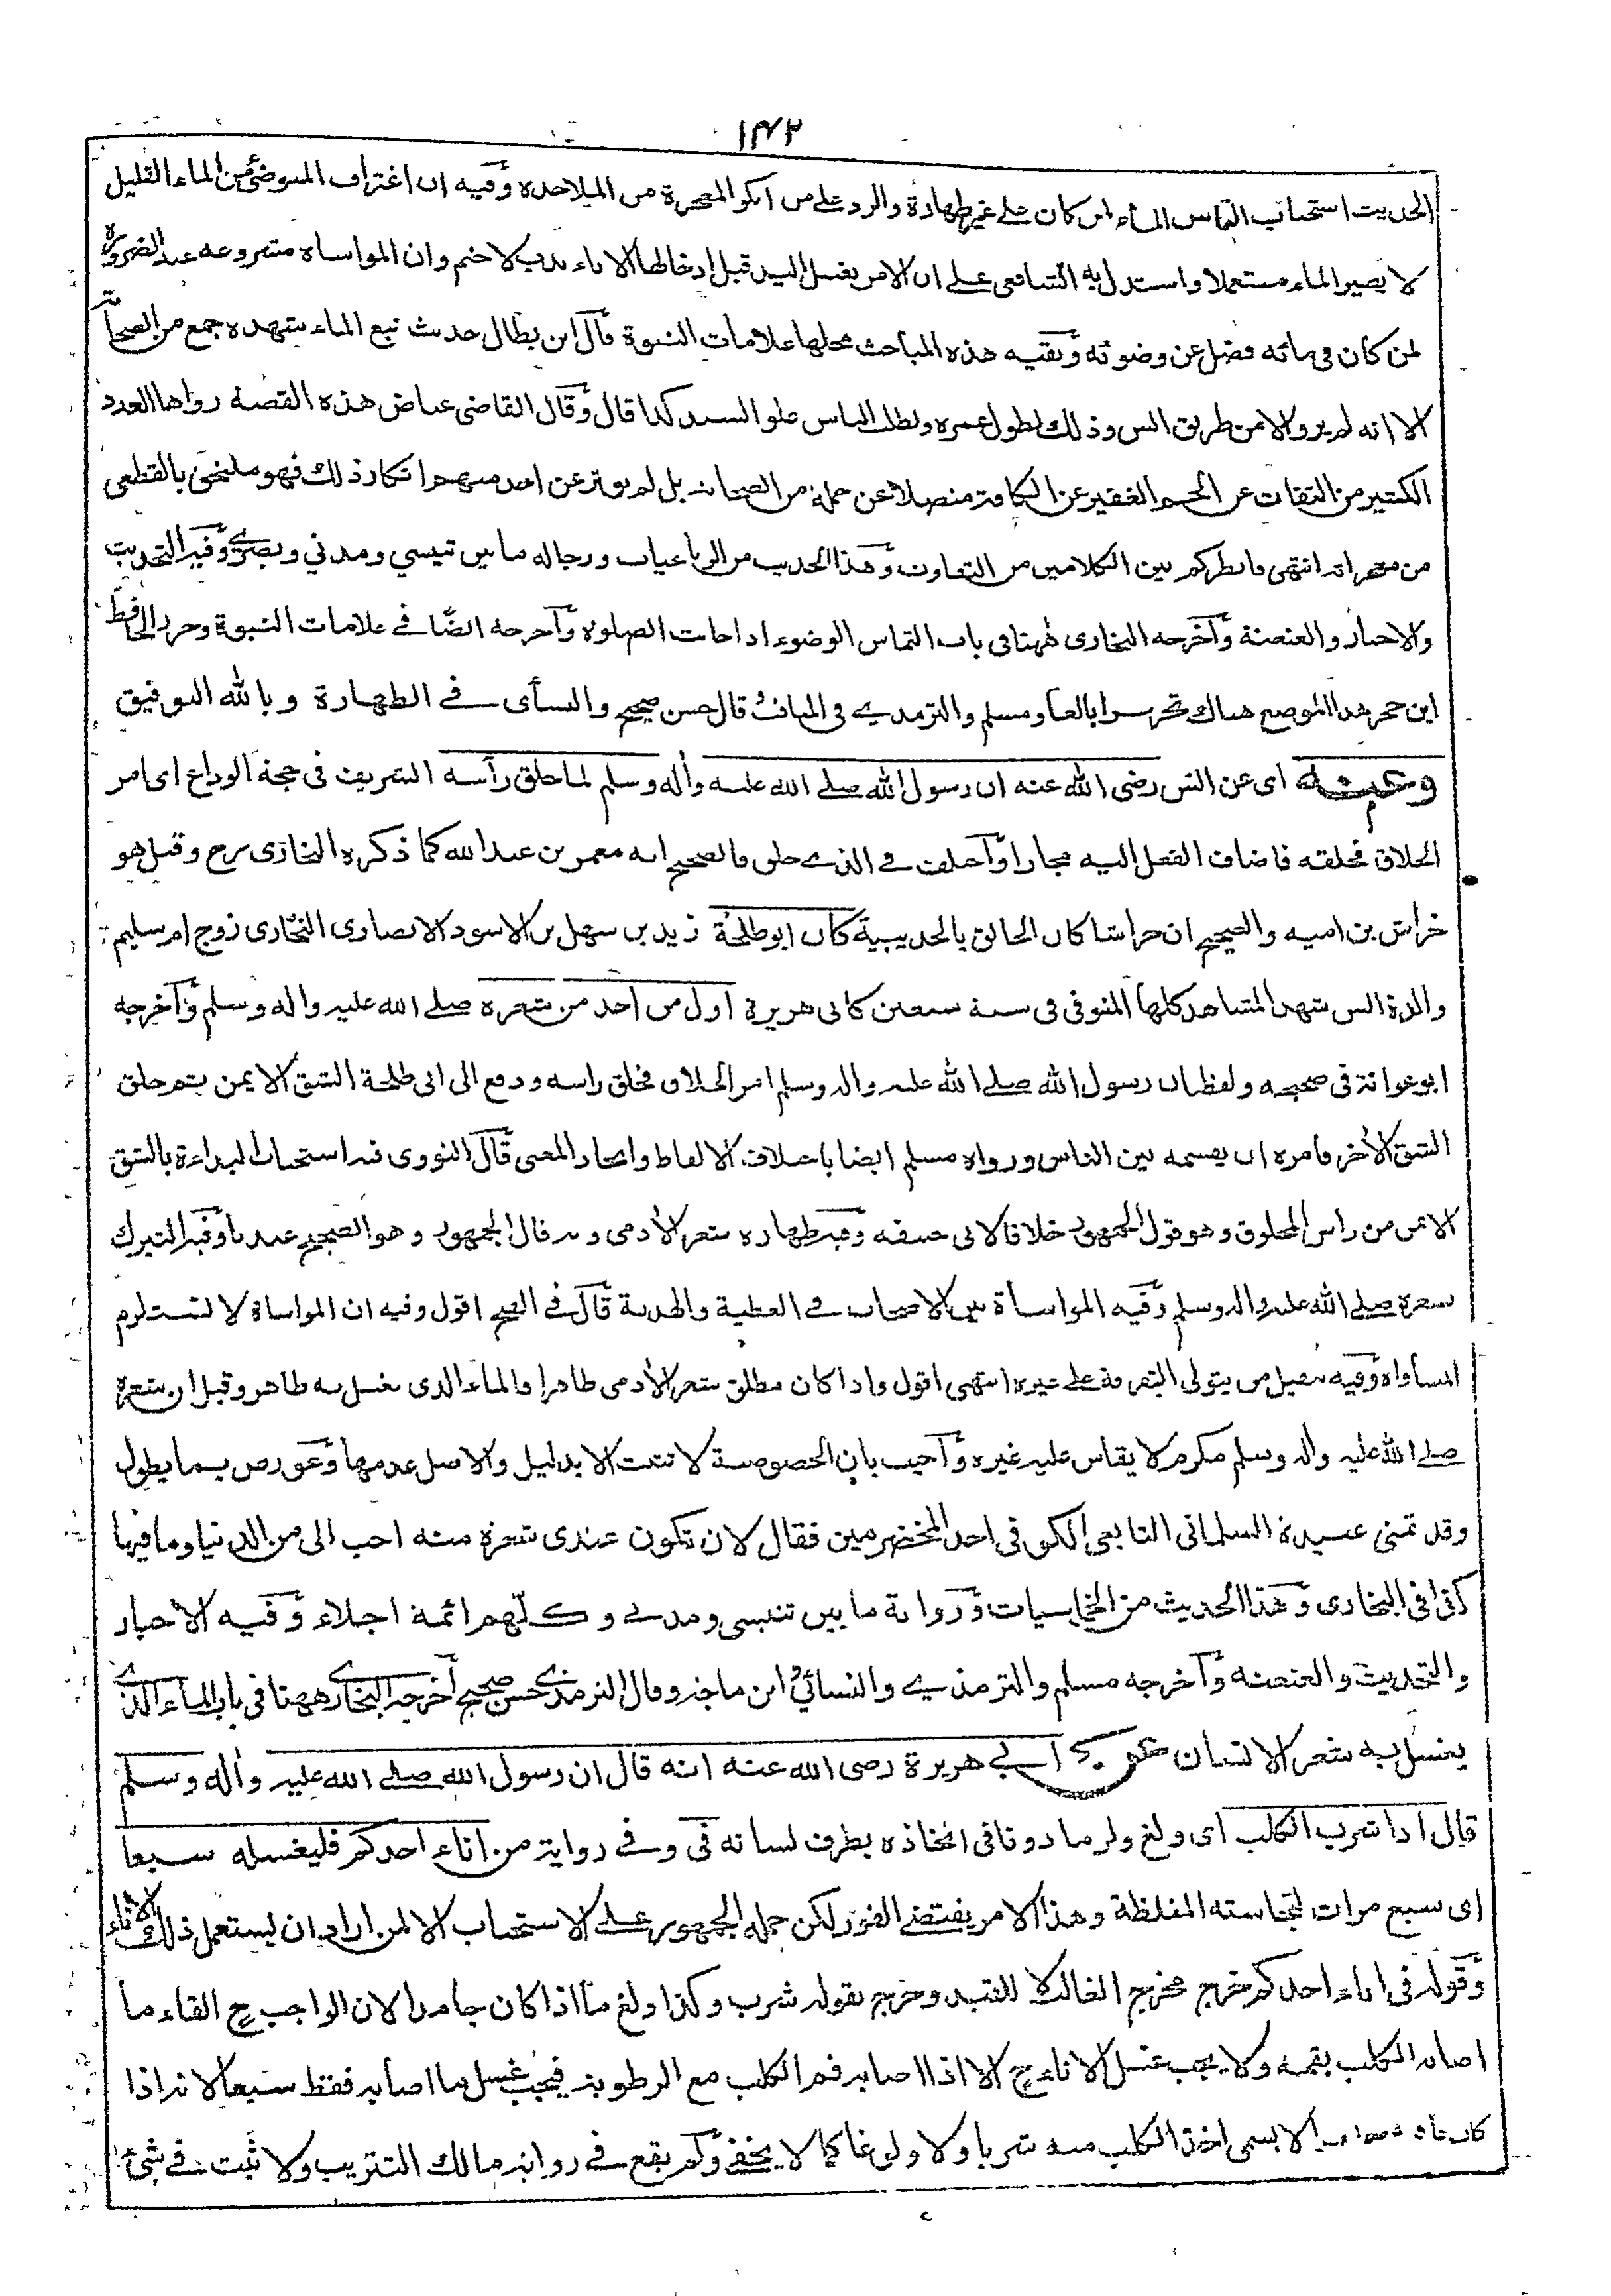 ١٤٢
الحديث استحباب التماس الماء لمن كان على غير طهارة والرد على من انكر المعجزة من الملاحدة وفيه ان اغتراف المتوضئ من الماء القليل
لا يصير الماء مستعملا واستدل به الشافعى على ان الامر بغسل اليد قبل ادخالها الاناء ندب لا حتم وان المواساة مشروعه عند الضرورة
لمن كان فى مائه فضل عن وضوئه وبقيه هذه المباحث محلها علامات النبوة قال ابن بطال حديث نبع الماء شهده جمع من الصحابة
الا انه لم يرو الا من طريق انس وذلك لطول عمره ولطلب الناس علو السند كذا قال وقال القاضى عياض هذه القصة رواها العدد
الكثير من الثقات عن الجم الغفير عن الكافة متصلا عن جملة من الصحابة بل لم يوثر عن احد منهم انكار ذلك فهو ملتحق بالقطعى
من معجزاته انتهى فانظر كم بين الكلامين من التفاوت وهذا الحديث من الرباعيات ورجاله ما بين تنيسي ومدني وبصرى وفيه التحديث
والاخبار والعنعنة وآخرجه البخارى ههنا فى باب التماس الوضوء اذا حانت الصلوة وآخرجه ايضا فے علامات النبوة وحرر الحافظ
ابن حجر هذا الموضع هناك تحريرا بالغا ومسلم والترمذے فى المناقب وقال حسن صحيح والنسأى فے الطهارة وبالله التوفيق
وعنه اى عن انس رضى الله عنه ان رسول الله صلے الله عليه وأله وسلم لما حلق رأسه الشريف فى حجة الوداع اى امر
الحلاق فحلقه فاضاف الفعل اليه مجازا وآختلف فے الذے حلق فالصحيح انه معمر بن عبد الله كما ذكره البخارى رح وقيل هو
خراش بن اميه والصحيح ان خراشا كان الحالق بالحديبية كان ابو طلحة زيد بن سهل بن الاسود الانصارى النجارى زوج ام سليم
والدة انس شهد المشاهد كلها المتوفى فى سنة سبعين كابى هريرة اول من اخذ من شعره صلے الله عليه واله وسلم وآخرجه
ابو عوانة فى صحيحه ولفظه ان رسول الله صلے الله عليه واله وسلم امر الحلاق فحلق راسه ودفع الى ابى طلحة الشق الايمن ثم حلق
الشق الأخر فامره ان يقسمه بين الناس ورواه مسلم ايضا باختلاف الالفاظ واتحاد المعنى قال النووى فيه استحباب البداءة بالشق
الايمن من راس المحلوق وهو قول الجمهور خلافا لابى حنيفه وفيه طهارة شعر الأدمى وبه قال الجمهور وهو الصحيح عندنا وفيه التبرك
بشعره صلے الله عليه واله وسلم وفيه المواساة بين الاصحاب فے العطية والهدية قال فے الفتح اقول وفيه ان المواساة لا تستلزم
المسأواة وفيه تنفيل من يتولى التفرقة على غيره انتهى اقول واذا كان مطلق شعر الأدمى طاهرا فالماء الذى يغسل به طاهر وقيل ان شعره
صلے الله عليه واله وسلم مكرم لا يقاس عليه غيره وآجيب بان الخصوصية لا تثبت الا بدليل والاصل عدمها وعورض بما يطول
وقد تمنى عبيدة السلمانى التابعى الكوفى احد المخضرمين فقال لان تكون عندى شعرة منه احب الى من الدنيا وما فيها
كذا فى البخارى وهذا الحديث من الخماسيات ورواته ما بين تنيسى ومدنے وكلهم ائمة اجلاء وفيه الاخبار
والتحديث والعنعنه وآخرجه مسلم والترمذے والنسائى وابن ماجة وقال الترمذے حسن صحيح أخرجه البخارى ههنا فى باب الماء الذے
يغسل به شعر الانسان عن ابے هريرة رضى الله عنه انه قال ان رسول الله صلے الله عليه واله وسلم
قال اذا شرب الكلب اى ولغ ولو ماذونا فى اتخاذه بطرف لسانه فى وفے رواية من اناء احدكم فليغسله سبعا
اى سبع مرات لنجاسته المغلظة وهذا الامر يقتضے الفور لكن حمله الجمهور على الاستحباب الا لمن اراد ان يستعمل ذلك الاناء
وقوله فى اناء احدكم خرج مخرج الغالب لا للتقييد وخرج بقوله شرب وكذا ولغ ما اذا كان جامدا لان الواجب ح القاء ما
اصابه الكلب بفمه ولا يجب غسل الاناء ح الا اذا اصابه فم الكلب مع الرطوبة فيجب غسل ما اصابه فقط سبعا لانه اذا
كان ما فيه جامدا لا يسمى اخذ الكلب منه شربا ولا ولوغا كما لا يخفے ولم يقع فے رواية مالك التتريب ولا ثبت فے شئ